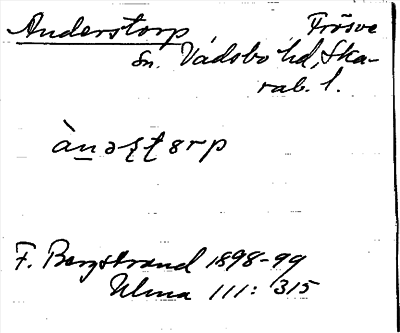 Anderstorp Frösve
sn. Vadsbo hd, Ska-
rab. l.
ànəʂʈɵrp
F. Bergstrand 1898-99
Ulma 111: 315